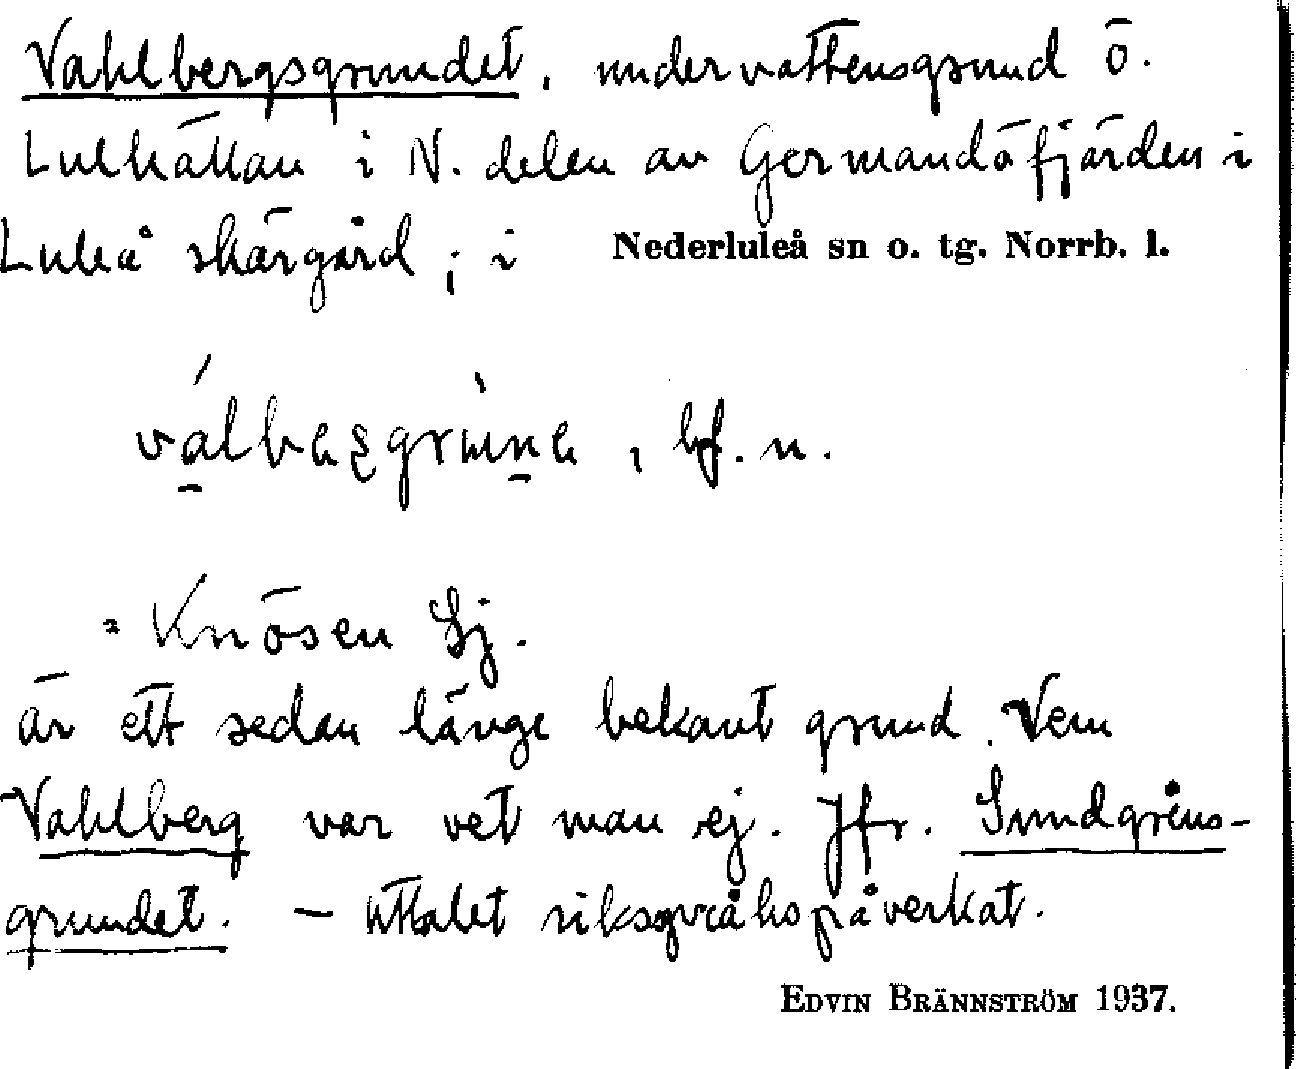 Vahlbergsgrundet, undervattensgrund ö.
Lulhällan i N. delen av Germandöfjärden i
Luleå skärgård; i Nederluleå sn o. tg. Norrb. l.
bf. n.
= Knösen Sj.
är ett sedan länge bekant grund. Vem
Vahlberg var vet man ej. Jfr. Sundgrens-
grundet. – Uttalet riksspråkspåverkat.
EDVIN BRÄNNSTRÖM 1937.